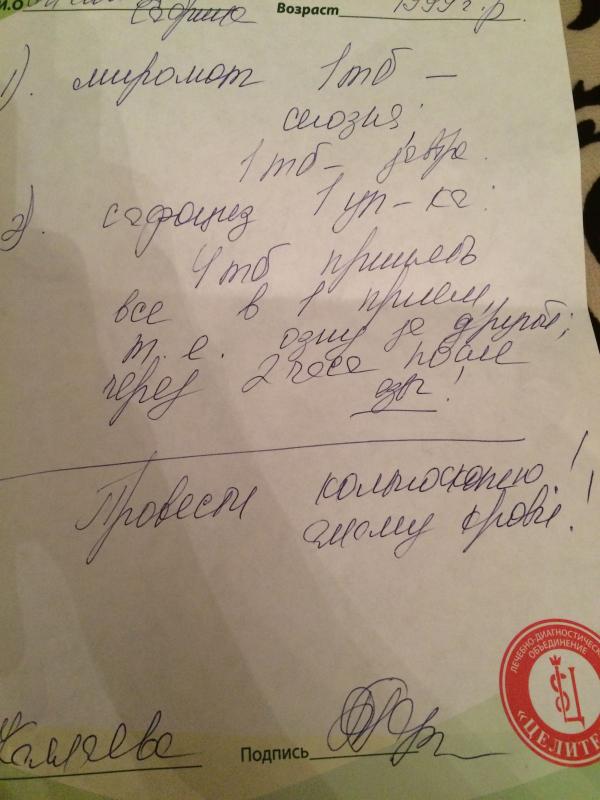 И.О Возраст 1999 г.р.
1). миромат 1тб –
сегодня;
1тб – завтра.
2). сафоцид 1 уп – ка:
4тб принять
все в 1 прием,
т.е. одну за другой;
через 2 часа после
еды!
Провести кольпоскопию!
анализ крови!
Подпись
ЛЕЧЕБНО-ДИАГНОСТИЧЕСКОЕ
ОБЪЕДИНЕНИЕ
«ЦЕЛИТЕ